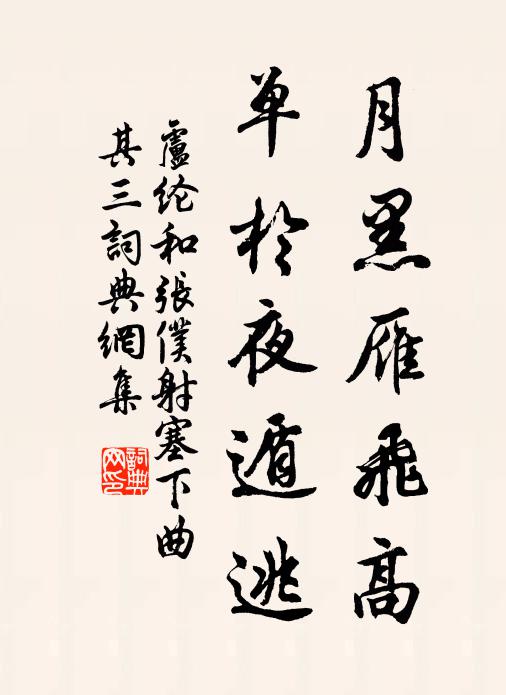 月黑雁飛高
单於夜遁逃
盧纶和張僕射塞下曲
其三詞典網集
詞典网印